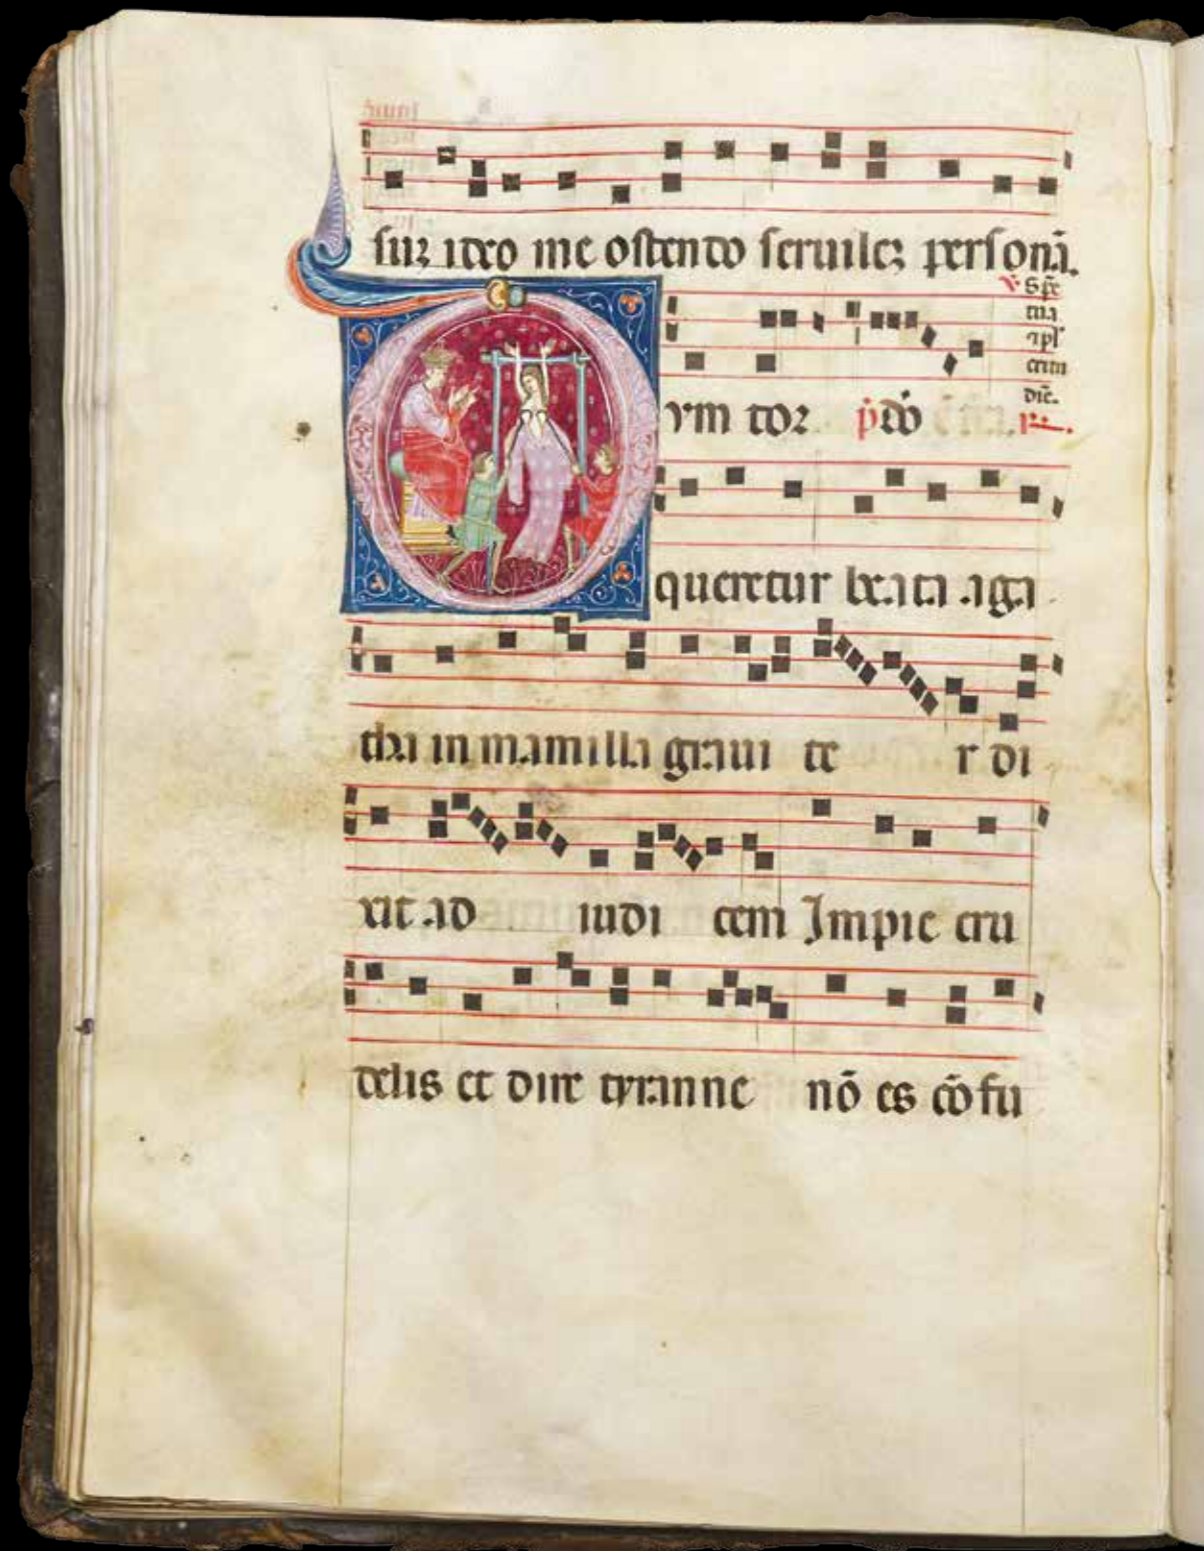 sum ideo me ostendo seruilez personā.
v. Spe
cia
apl'
crim
die.
Dvm tor p̄do
queretur beata aga
tha in mamilla graui te r di
xit ad iudi cem Impie cru
delis et dire tyranne nō es cōfu